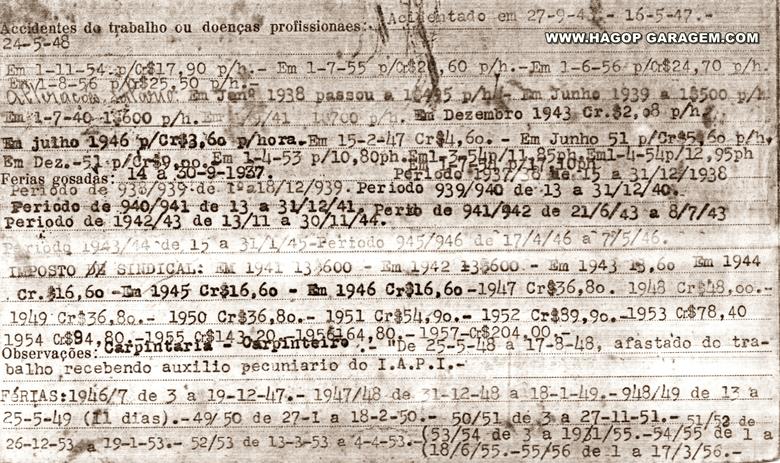 Acidentado em 27-9-4 .- 16-5-47.-
Accidentes do trabalho ou doenças profissionaes:
24-5-48
WWW.HAGOP GARAGEM.COM
Em 1-11-54 p/Cr$17,90 p/h.- Em 1-7-55 p/Cr$2 ,60 p/h.-Em 1-6-56 p/Cr$24,70 p/h.
Em 1-8-56 p/Cr$25,50 p/h.-
Em Janº 1938 passou a 1$ p/h - Em Junho 1939 a 1$500 p/h
Em 1-7-40-1$600 p/h. Em p/h. Em Dezembro 1943 Cr.$2,o8 p/h
Em julho 1946 p/Cr$3,6o p/hora.-Em 15-2-47 Cr$4,6o.- Em Junho 51 p/Cr$5,6o p/h.
Em Dez.-51 p/Cr$9,oo.-Em 1-4-53 p/10,80ph.Em1-2-54p/11,85ph.Em1-4-54p/12,95ph
Ferias gosadas: 14 a 30-9-1937. Periodo 1937/38 de 15 a 31/12/1938
Periodo de 938/939 de 1ºa18/12/939. Periodo 939/940 de 13 a 31/12/40.
Periodo de 940/941 de 13 a 31/12/41. Perio de 941/942 de 21/6/43 a 8/7/43
Periodo de 1942/43 de 13/11 a 30/11/44.
Periodo 1943/44 de 15 a 31/1/45-Periodo 945/946 de 17/4/46 a 7/5/46.
IMPOSTO SINDICAL: EM 1941 13$600 - Em 1942 13$600 - Em 1943 13,6o Em 1944
Cr.$16,6o -Em 1945 Cr$16,6o - Em 1946 Cr$16,6o -1947 Cr$36,8o. 1948 Cr$48,oo.-
1949 Cr$36,8o.- 1950 Cr$36,8o.- 1951 Cr$54,9o.- 1952 Cr$89,9o.-1953 Cr$78,40
1954 Cr$94,80.-1955 Cr$143,20.-1956164,80.- 1957-Cr$204,00.-
Observações: Carpintaria - Carpinteiro .- "De 25-5-48 a 17-8-48, afastado do tra-
balho recebendo auxilio pecuniario do I.A.P.I.-
FÉRIAS:1946/7 de 3 a 19-12-47.- 1947/48 de 31-12-48 a 18-1-49.- 948/49 de 13 a
25-5-49 (11 dias).-49/50 de 27-1 a 18-2-50.- 50/51 de 3 a 27-11-51.- 51/52 de
26-12-53 a 19-1-53.- 52/53 de 13-3-53 a 4-4-53.-(53/54 de 3 a 19/1/55.-54/55 de 1 a
(18/6/55.-55/56 de 1 a 17/3/56.-